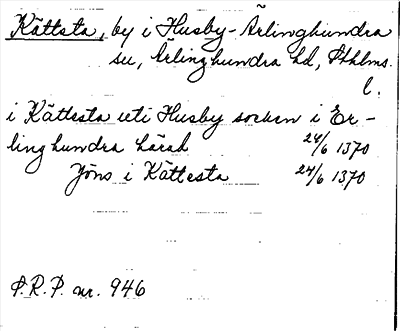 Kättsta, by i Husby-Ärlinghundra
sn, Ärlinghundra hd, Sthlms.
l.
i Kättesta uti Husby socken i Er-
linghundra härad 24/6 1370
Jöns i Kättesta 24/6 1370
P.R.P. nr. 946